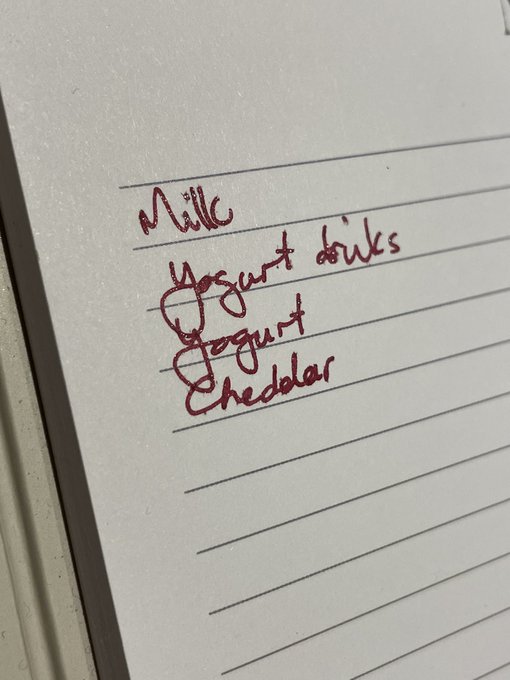 Milk
Yogurt drinks
Yogurt
Cheddar